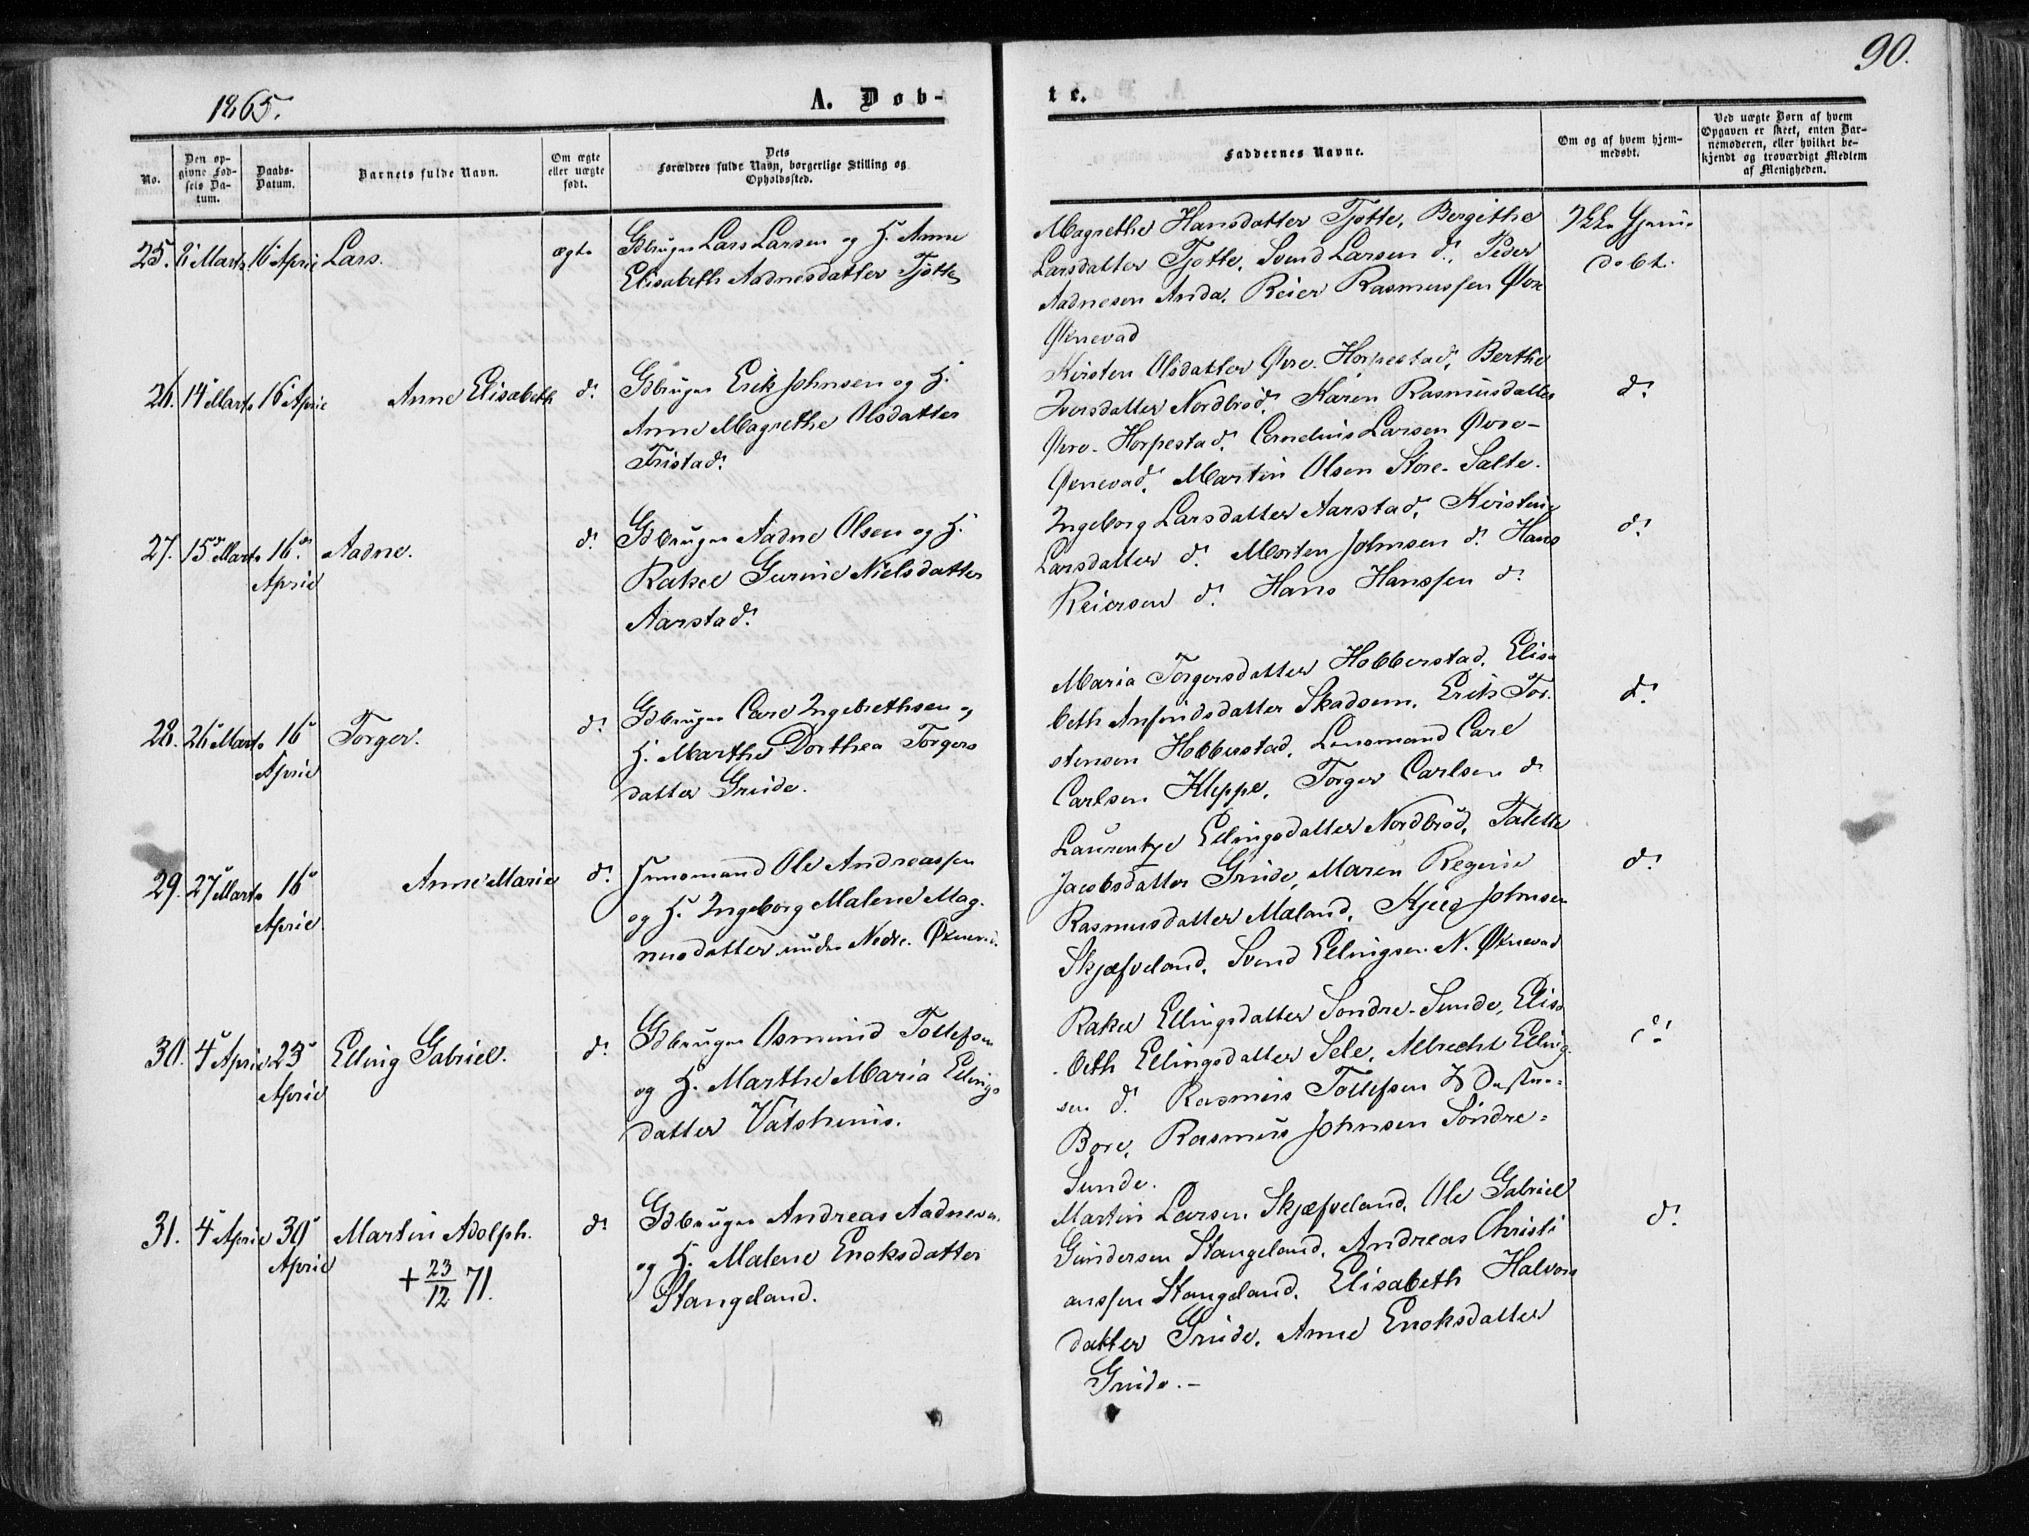 1865.
A. Døb-
te.
90.
No.
Den op-
givne Fød-
sels Da-
tum.
Daabs-
Datum.
Barnets fulde Navn.
Om ægte
eller uægte
født.
Dets
Forældres fulde Navn, borgerlige Stilling og
Opholdssted.
Faddernes Navne.
Om og af hvem hjem-
medøbt.
Ved uægte Børn af hvem
Opgaven er skeet, enten Bar-
nemoderen, eller hvilket be-
kjendt og troværdigt Medlem
af Menigheden.
25. 8 Marts 16 April Lars. ægte
Gdbruger Lars Larsen og H. Anne
Elisabeth Aadnesdatter Tjøtte
Magrethe Hansdatter Tjøtte, Bergithe
Larsdatter Tjøtte, Svend Larsen do, Peder
Aadnesen Anda, Reier Rasmussen Øvre
Øxnevad
Ikke Hjem-
døbt.
26. 14 Marts 16 April Anne Elisabeth do
Gdbruger Erik Johnsen og H.
Anne Magrethe Olsdatter
Tristad.
Kirsten Olsdatter Øvre Horpestad, Berthe
Iversdatter Nordbrød, Karen Rasmusdatter
Øvre-Horpestad, Cornelius Larsen Øvre-
Øxnevad, Martin Olsen Store-Salte.
do
27. 15 Marts 16 April Aadne. do
Gdbruger Aadne Olsen og H.
Rakel Gurine Nielsdatter
Aarstad.
Ingeborg Larsdatter Aarstad, Kirstine
Larsdatter do Morten Johnsen do Hans
Reiersen do Hans Hanssen do
do
28. 26 Marts 16 April Torger. do
Gdbruger Carl Ingebrethsen og
H. Marthe Dorthea Torgers
datter Grude.
Maria Torgersdatter Hobberstad, Elisa
beth Anfindsdatter Skadsem, Erik Tor-
stensen Hobberstad, Lensmand Carl
Carlsen Kleppe, Torger Carlsen do
do
29. 27 Marts 16 April Anne Marie do
Huusmand Ole Andreassen
og H. Ingeborg Malene Mag-
nusdatter under Nedre Øxnevad
Laurentze Ellingsdatter Nordbrød, Talette
Jacobsdatter Grude, Maren Regine
Rasmusdatter Mæland, Kjeld Johnsen
Skjæfveland, Svend Ellingsen N. Øxnevad
do
30. 4 April 23 April Elling Gabriel. do
Gdbruger Osmund Tollefsen
og H. Marthe Maria Ellings
datter Vatshuus.
Rakel Ellingsdatter Søndre-Sunde, Elisa
beth Ellingsdatter Sele, Albrecht Elling-
sen do Rasmus Tollefsen
Bore, Rasmus Johnsen Søndre-
Sunde.
do
31. 4 April 30 April Martin Adolph. do
+ 23/12 71.
Gdbruger Andreas Aadnesen
og H. Malene Enoksdatter
Stangeland.
Martin Larsen Skjæfveland, Ole Gabriel
Gundersen Stangeland, Andreas Christi
anssen Stangeland, Elisabeth Halvors
datter Grude, Anne Enoksdatter
Grude.-
do